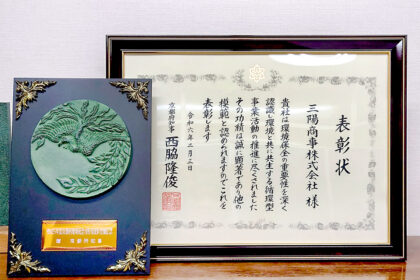 表彰状
三陽商事株式会社 様
貴社は環境保全の重要性を深く
認識し環境と共に共生する循環型
事業活動の推進に尽くされました
その功績は誠に顕著であり他の
模範と認められますのでこれを
表彰します
令和六年二月三日
京都府知事 西脇隆俊